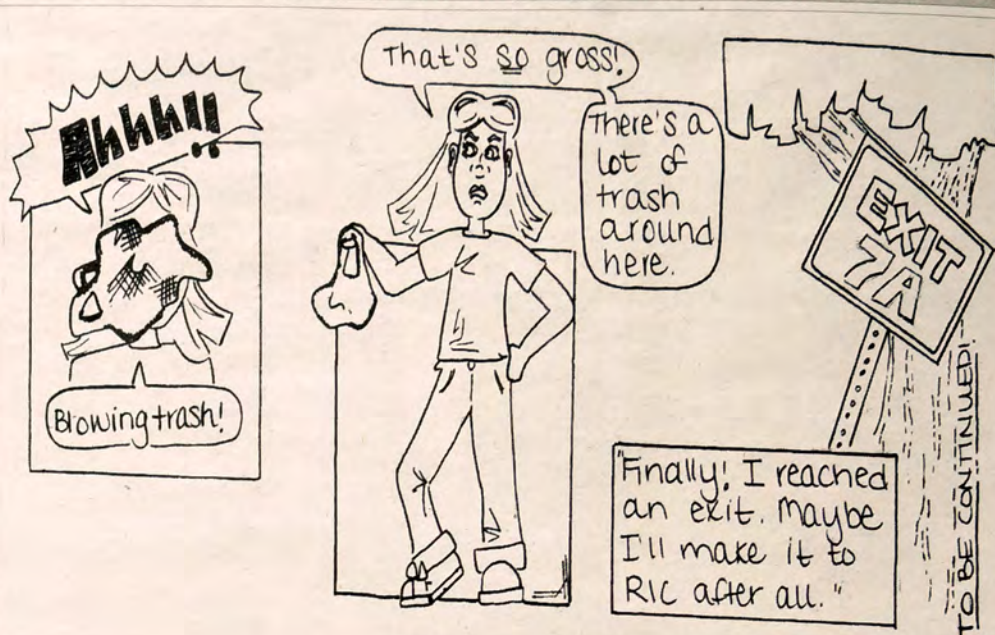 Ahhh!!
Blowing trash!
That's so gross!
There's a
lot of
trash
around
here.
EXIT
7A
"Finally! I reached
an exit. Maybe
I'll make it to
RIC after all."
TO BE CONTINUED!